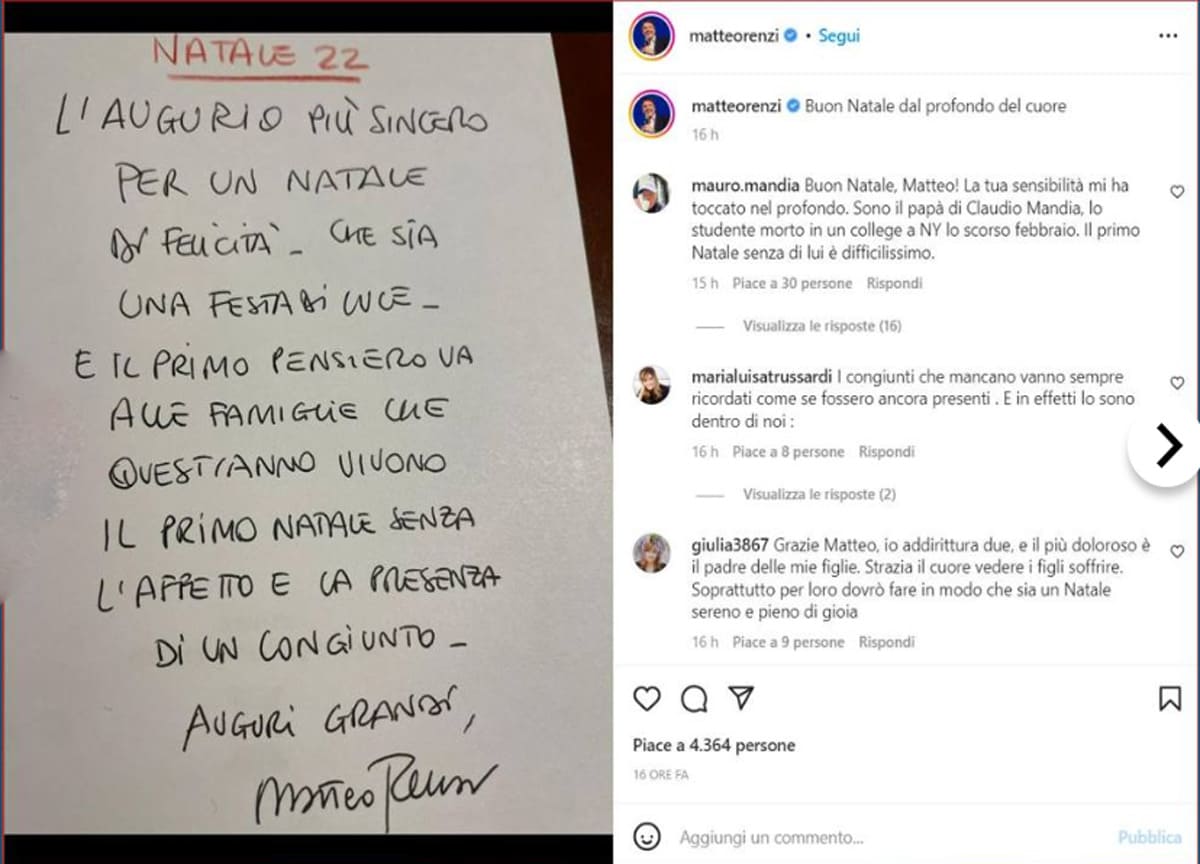 NATALE 22
L'AUGURIO PIÙ SINCERO
PER UN NATALE
DI FELICITA' - CHE SIA
UNA FESTA DI LUCE -
E IL PRIMO PENSIERO VA
ALLE FAMIGLIE CHE
QUEST'ANNO VIVONO
IL PRIMO NATALE SENZA
L'AFFETTO E LA PRESENZA
DI UN CONGIUNTO -
AUGURI GRANDI,
Matteo Renzi
matteorenzi • Segui
matteorenzi Buon Natale dal profondo del cuore
16 h
mauro.mandia Buon Natale, Matteo! La tua sensibilità mi ha
toccato nel profondo. Sono il papà di Claudio Mandia, lo
studente morto in un college a NY lo scorso febbraio. Il primo
Natale senza di lui è difficilissimo.
15 h Piace a 30 persone Rispondi
Visualizza le risposte (16)
marialuisatrussardi I congiunti che mancano vanno sempre
ricordati come se fossero ancora presenti . E in effetti lo sono
dentro di noi :
16 h Piace a 8 persone Rispondi
Visualizza le risposte (2)
giulia3867 Grazie Matteo, io addirittura due, e il più doloroso è
il padre delle mie figlie. Strazia il cuore vedere i figli soffrire.
Soprattutto per loro dovrò fare in modo che sia un Natale
sereno e pieno di gioia
16 h Piace a 9 persone Rispondi
Piace a 4.364 persone
16 ORE FA
Aggiungi un commento... Pubblica